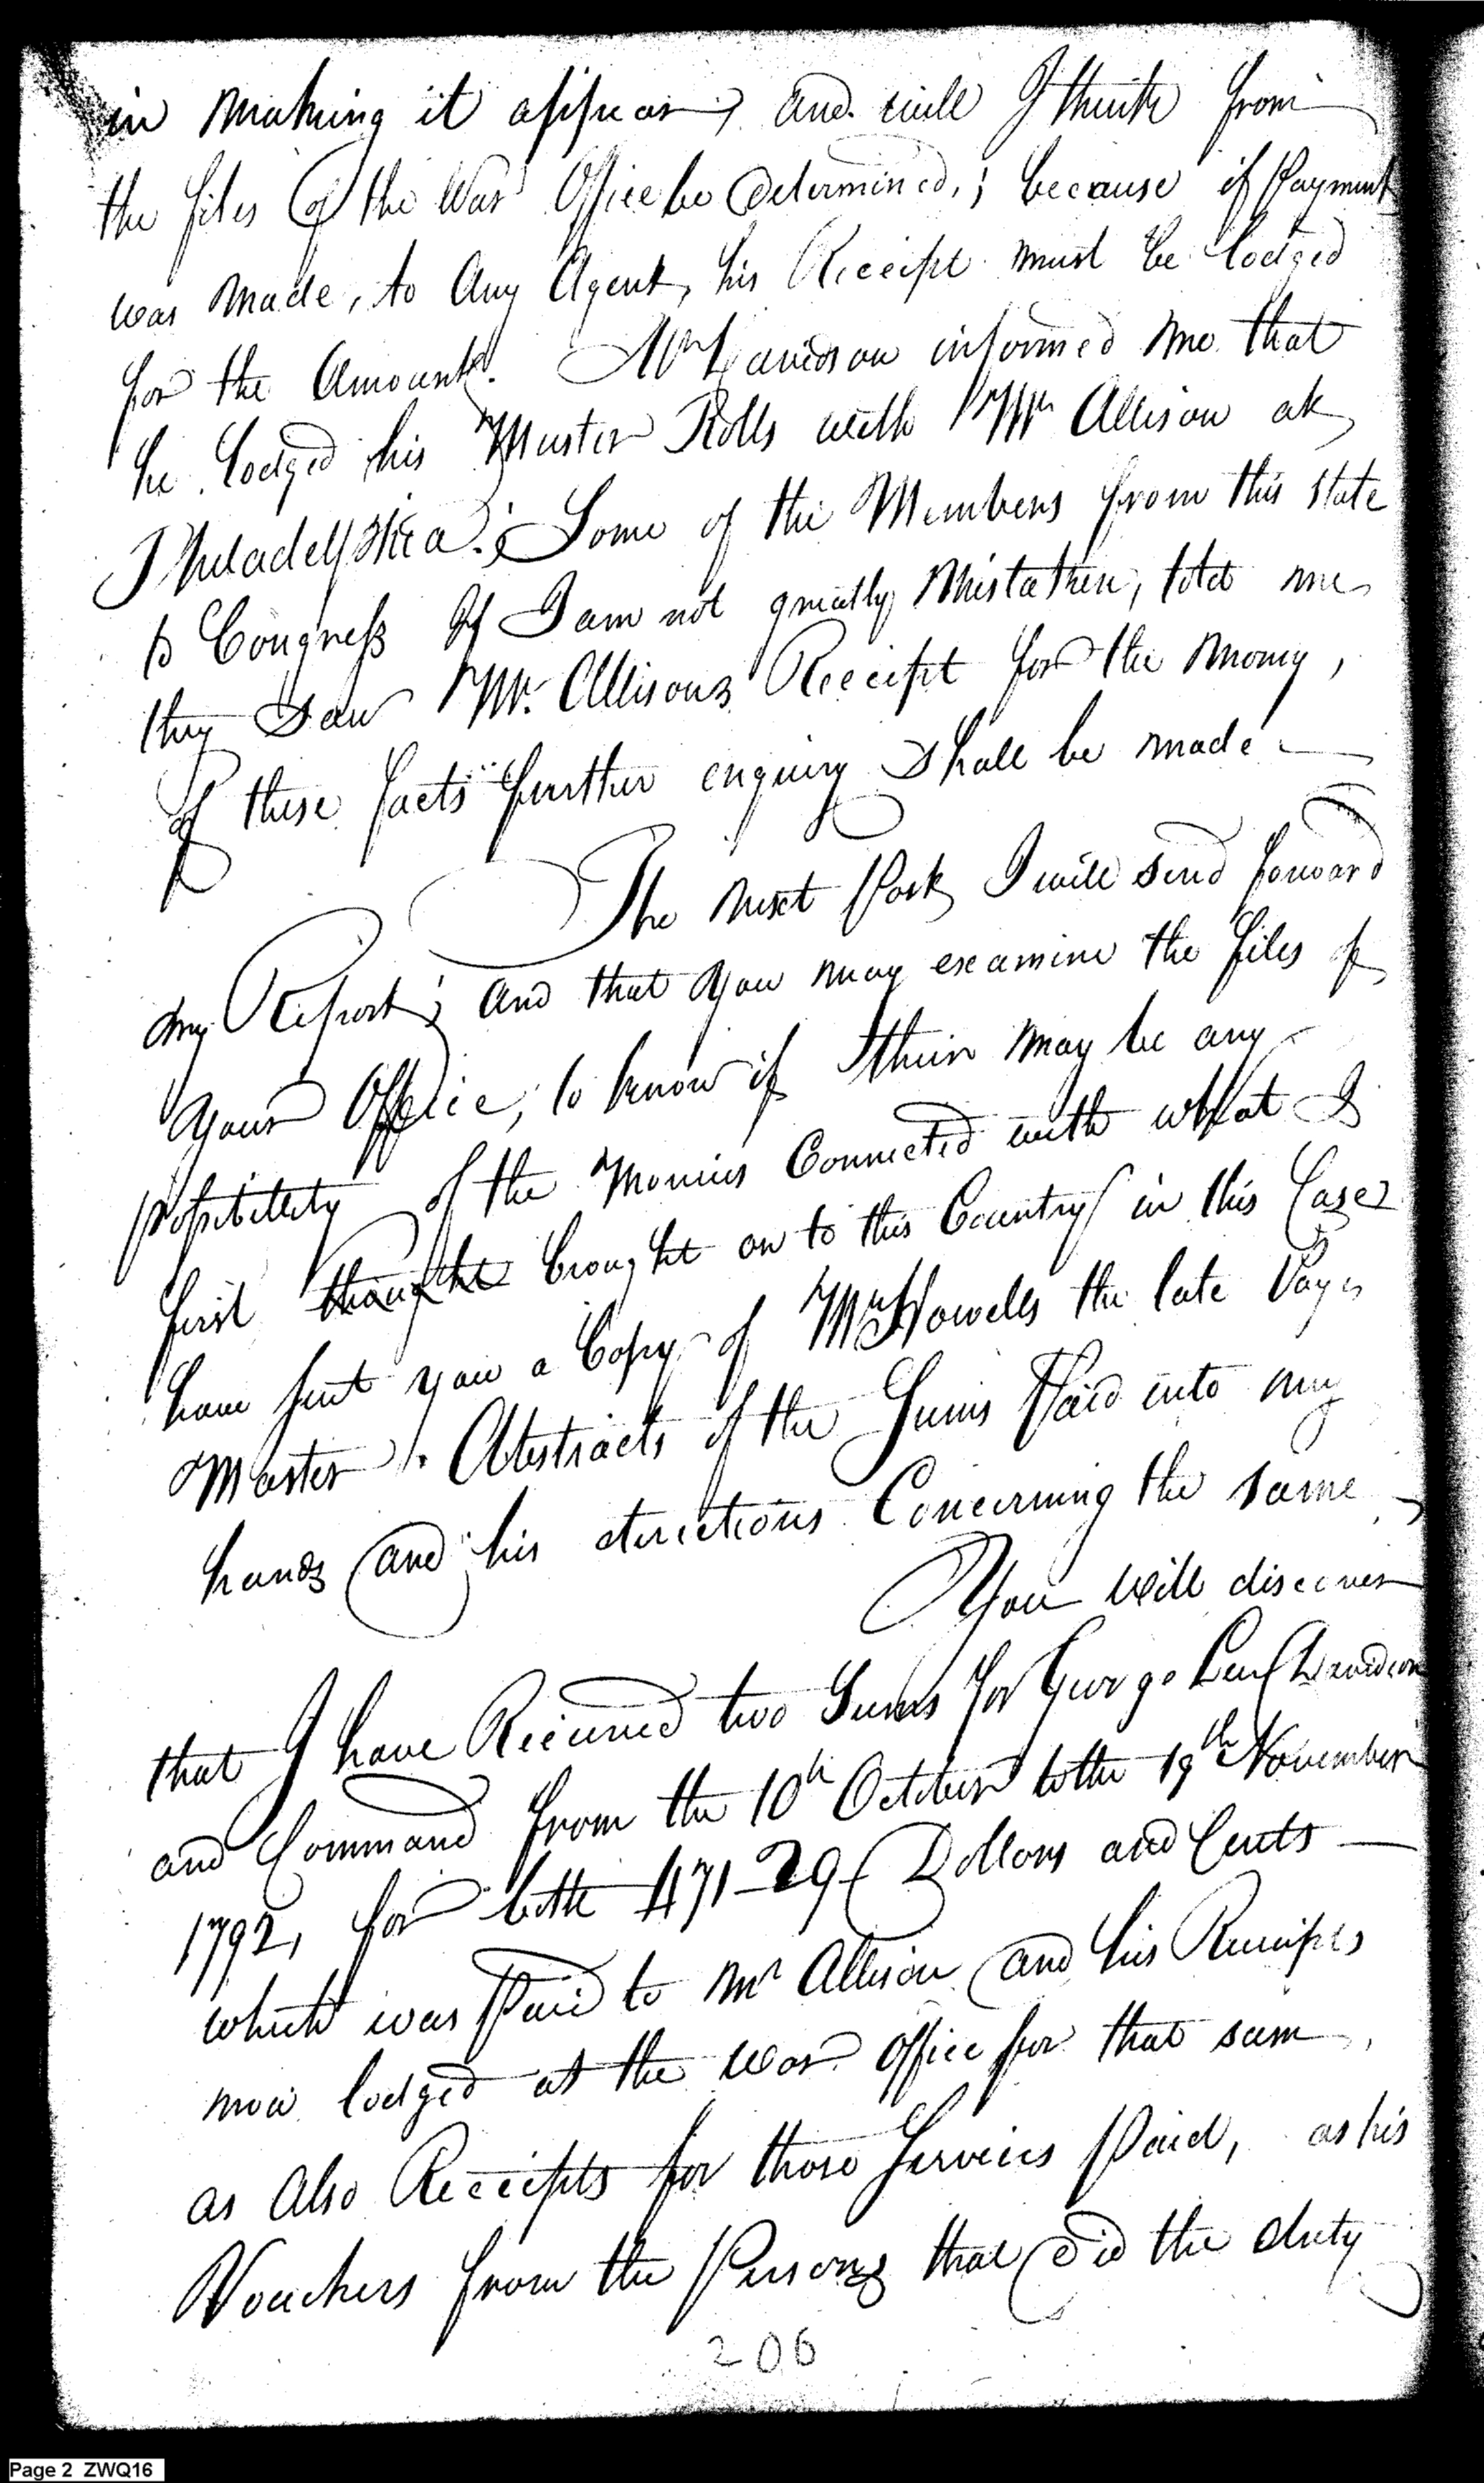 in making it appear, and will I think from
the files of the War Office be determined,; because if Payment
was made, to Any Agent, his Receipt must be lodged
for the Amount. Mr Davidson informed me that
he lodged his Muster Rolls with Mr Allison at
Philadelphia; Some of the Members from this state
to Congress If I am not greatly Mistaken, told me
they saw Mr. Allisons Receipt for the money,
of these facts further enquiry shall be made —
The next Post I will send forward
my Report; and that you may examine the files of
your Office, to know if their may be any
possibillity of the Monies Connected with what I
first thought brought on to this Country in this Case
have sent you a Copy of Mr Howells the late Pay
Master. Abstracts of the Sums Paid into my
hands and his directions Concerning the same,
You will discover
that I have Recieved two Sums for George Davidson
and Command from the 10th October to the 19th November
1792, for both 471-29 Dollars and Cents —
which was Paid to Mr Allison and his Receipts
now lodged at the war office for that sum,
as Also Receipts for those Services Paid, as his
Vouchers from the Persons that did the duty
206
Page 2 ZWQ16